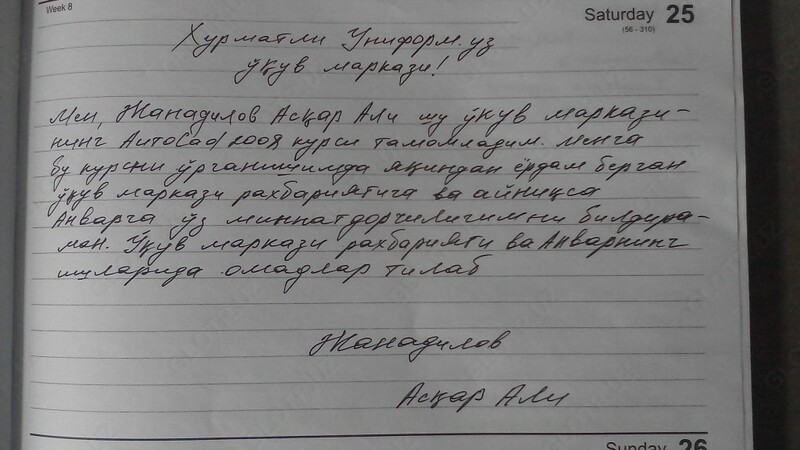 Week 8
Saturday 25
(56 - 310)
Хурматли Униформ.уз
ўқув маркази!
Мен, Жанадилов Асқар Али шу ўқув маркази-
нинг AutoCad 2008 курси тамомладим. Менга
бу курсни ўрганишимда яқиндан ёрдам берган
ўқув маркази рахбариятига ва айниқса
Анварга ўз миннатдорчилигимни билдира-
ман. Ўқув маркази рахбарияти ва Анварнинг
ишларида омадлар тилаб
Жанадилов
Асқар Али
Sunday 26